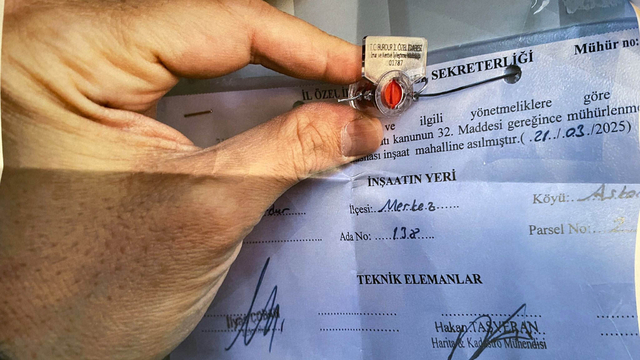 T.C. BURDUR İL ÖZEL İDARESİ
01787
İL ÖZEL İ
SEKRETERLİĞİ
Mühür no:
ve ilgili yönetmeliklere göre
kanunun 32. Maddesi gereğince mühürlenm
inşaat mahalline asılmıştır.( .21../.03./2025)
İNŞAATIN YERİ
İlçesi:..Merkez
Köyü:
Ada No: .....138......
Parsel No:.
TEKNİK ELEMANLAR
Hakan TAŞYERAN
Harita & Kadastro Mühendisi